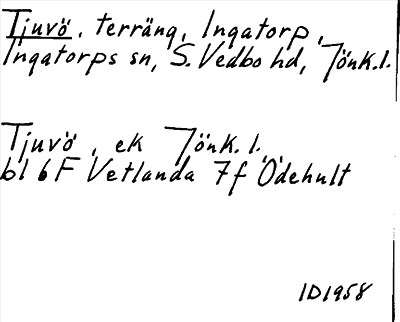 Tjuvö, terräng, Ingatorp,
Ingatorps sn, S. Vedbo hd, Jönk.l.
Tjuvö, ek Jönk. l.
bl 6F Vetlanda 7f Ödehult
ID1958